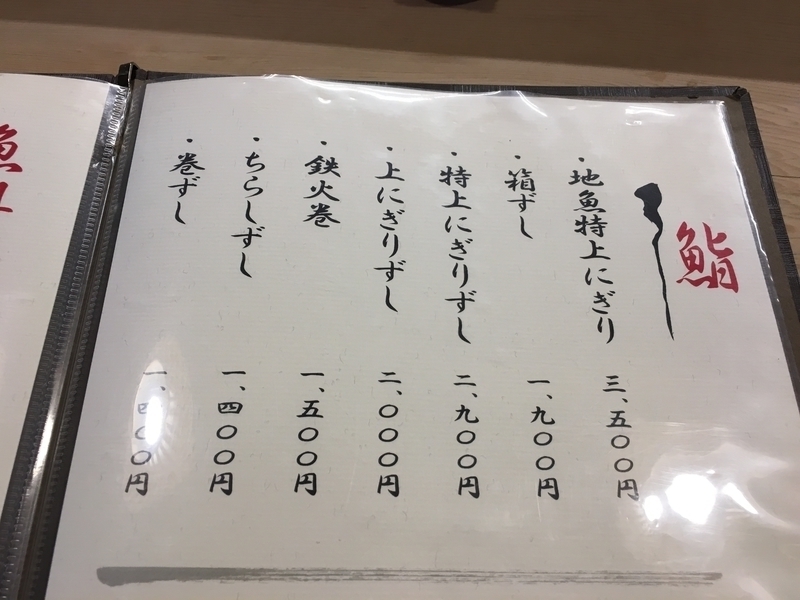 鮨
・地魚特上にぎり 三、五〇〇円
・箱ずし 一、九〇〇円
・特上にぎりずし 二、九〇〇円
・上にぎりずし 二、〇〇〇円
・鉄火巻 一、五〇〇円
・ちらしずし 一、四〇〇円
・巻ずし 一、四〇〇円